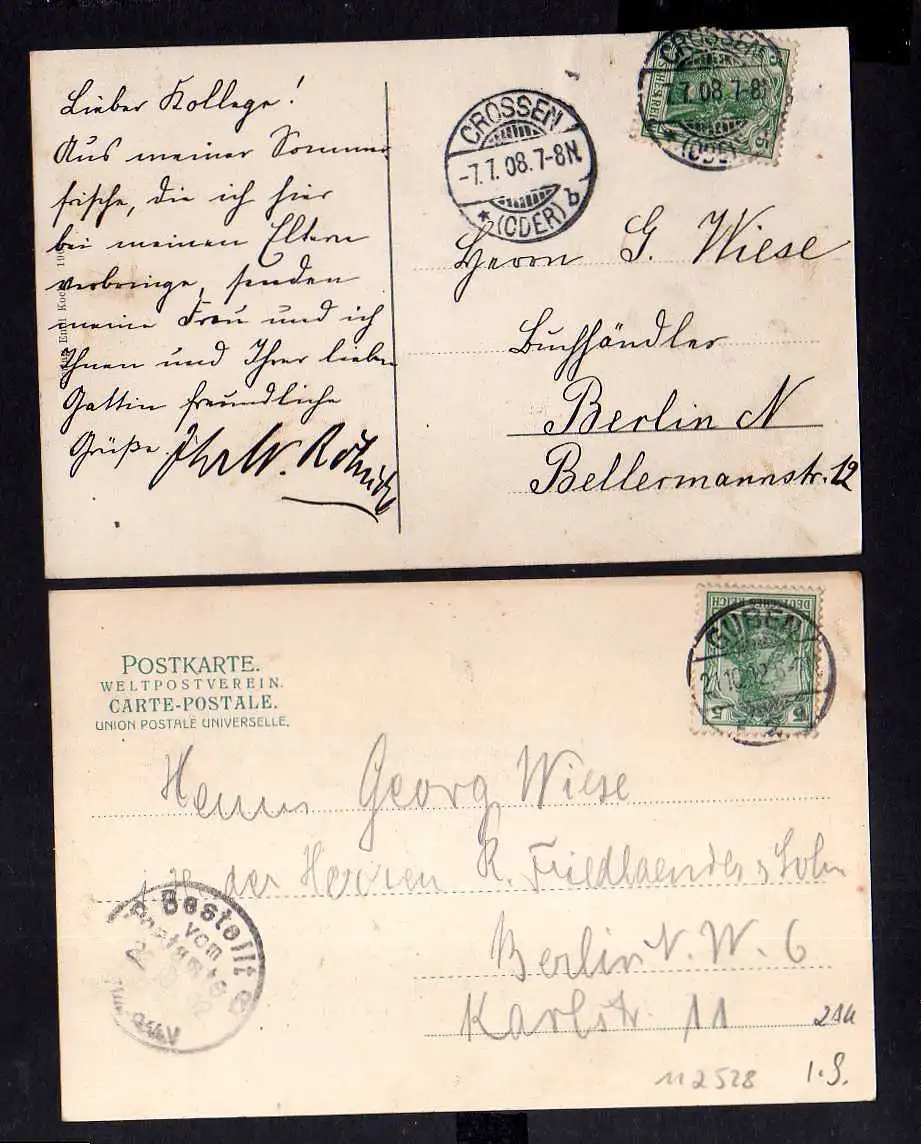 Lieber Kollege!
Aus meiner Sommer-
frische, die ich hier
bei meinen Eltern
verbringe, senden
meine Frau und ich
Ihnen und Ihrer lieben
Gattin freundliche
Grüße. Ihr W.
Emil Koch
CROSSEN
-7.7.08.7-8N.
* (ODER) b
CROSSEN
7.08.7-8
(ODER)
5
Herrn G. Wiese
Buchhändler
Berlin N
Bellermannstr. 12
POSTKARTE.
WELTPOSTVEREIN.
CARTE-POSTALE.
UNION POSTALE UNIVERSELLE.
DEUTSCHES REICH
GUBEN
5 5
Herrn Georg Wiese
der Herren R. Friedlaender & Sohn
Berlin N. W. 6
Karlstr. 11
Bestellt
vom
Postamte
6
112528
1.9.